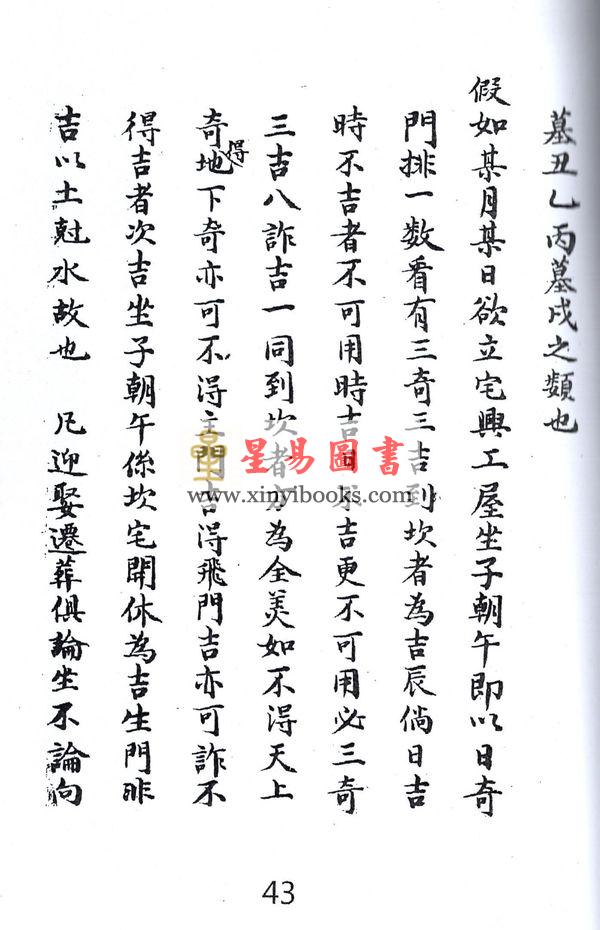 墓丑乙丙墓戌之類也
假如某月某日欲立宅興工屋坐子朝午即以日奇
門排一数看有三奇三吉到坎者為吉辰倘日吉
時不吉者不可用時吉日不吉更不可用必三奇
三吉八詐吉一同到坎者方為全美如不得天上
奇地得下奇亦可不得主門吉得飛門吉亦可詐不
得吉者次吉坐子朝午係坎宅開休為吉生門非
吉以土尅水故也 凡迎娶遷葬俱論坐不論向
星易圖書
www.xinyibooks.com
43